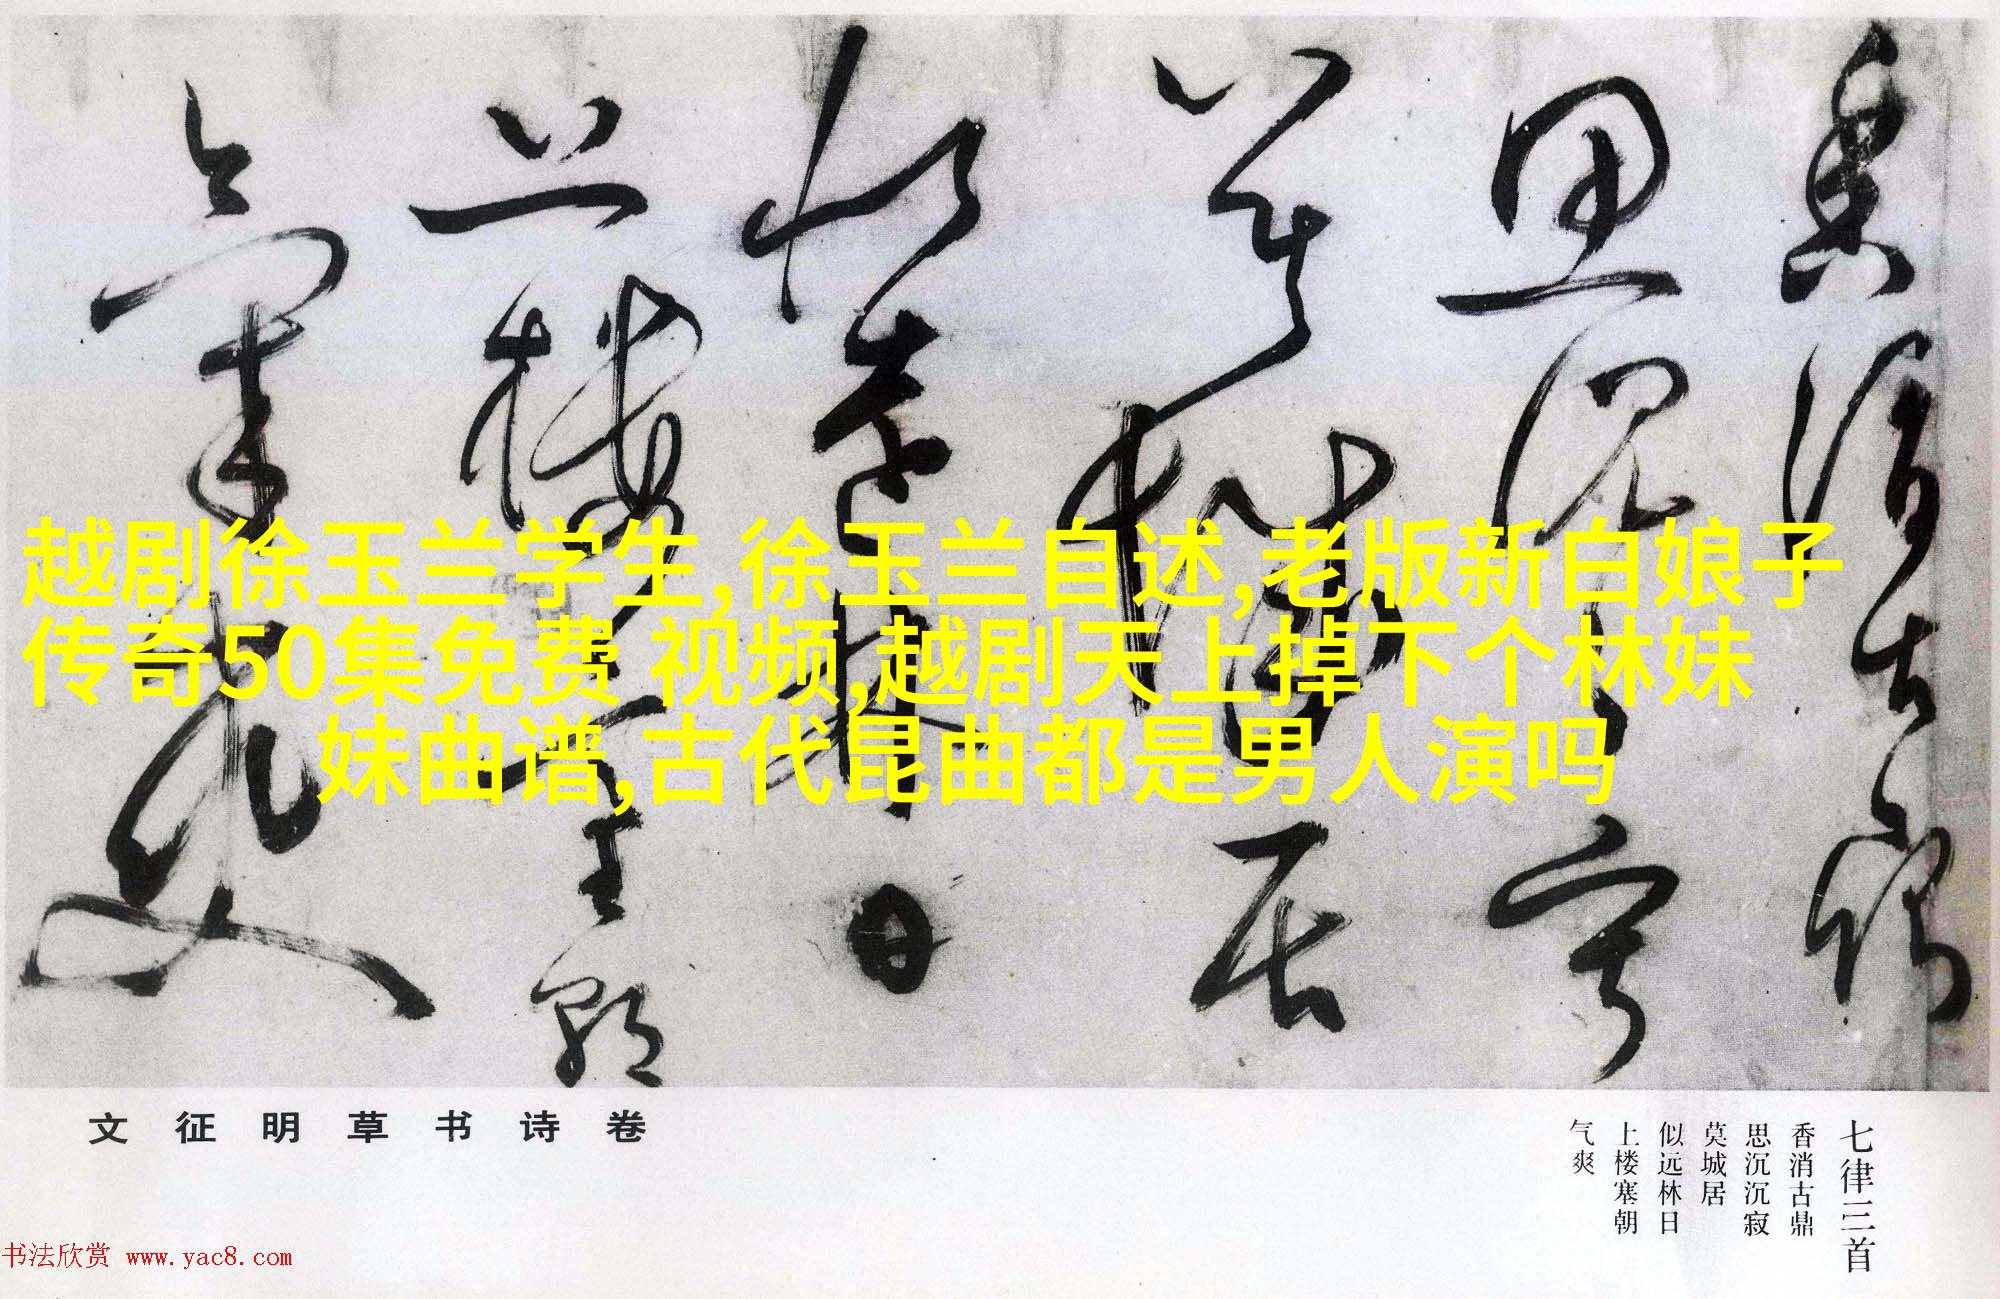 香消古鼎
思沉沉寂
莫城居
似远林日
上楼塞朝
气爽
越剧徐玉兰学生,徐玉兰自述,老版新白娘子
传奇50集免费 视频,越剧天上掉下个林妹
妹曲谱,古代昆曲都是男人演吗
文征明草书诗卷
七律三首
香消古鼎
思沉沉寂
莫城居
似远林日
上楼塞朝
气爽
书法欣赏 www.yac8.com